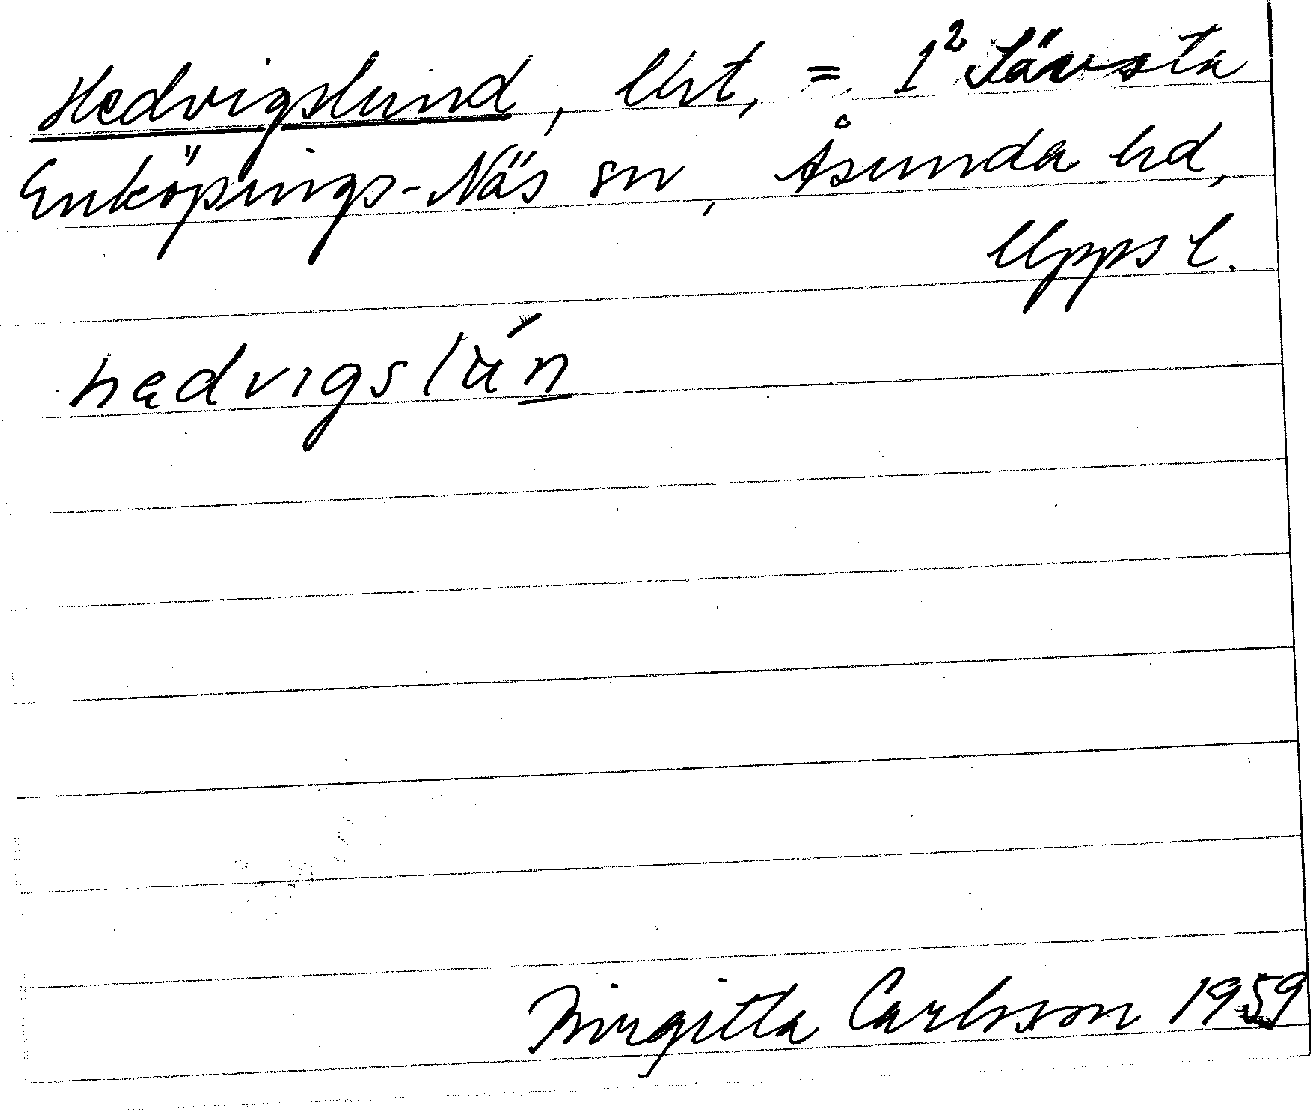 Hedvigslund, Uht, = 1² Sävsta
Enköpings-Näs sn, Åsunda hd,
Upps l.
hedvigslun
Birgitta Carlsson 1959